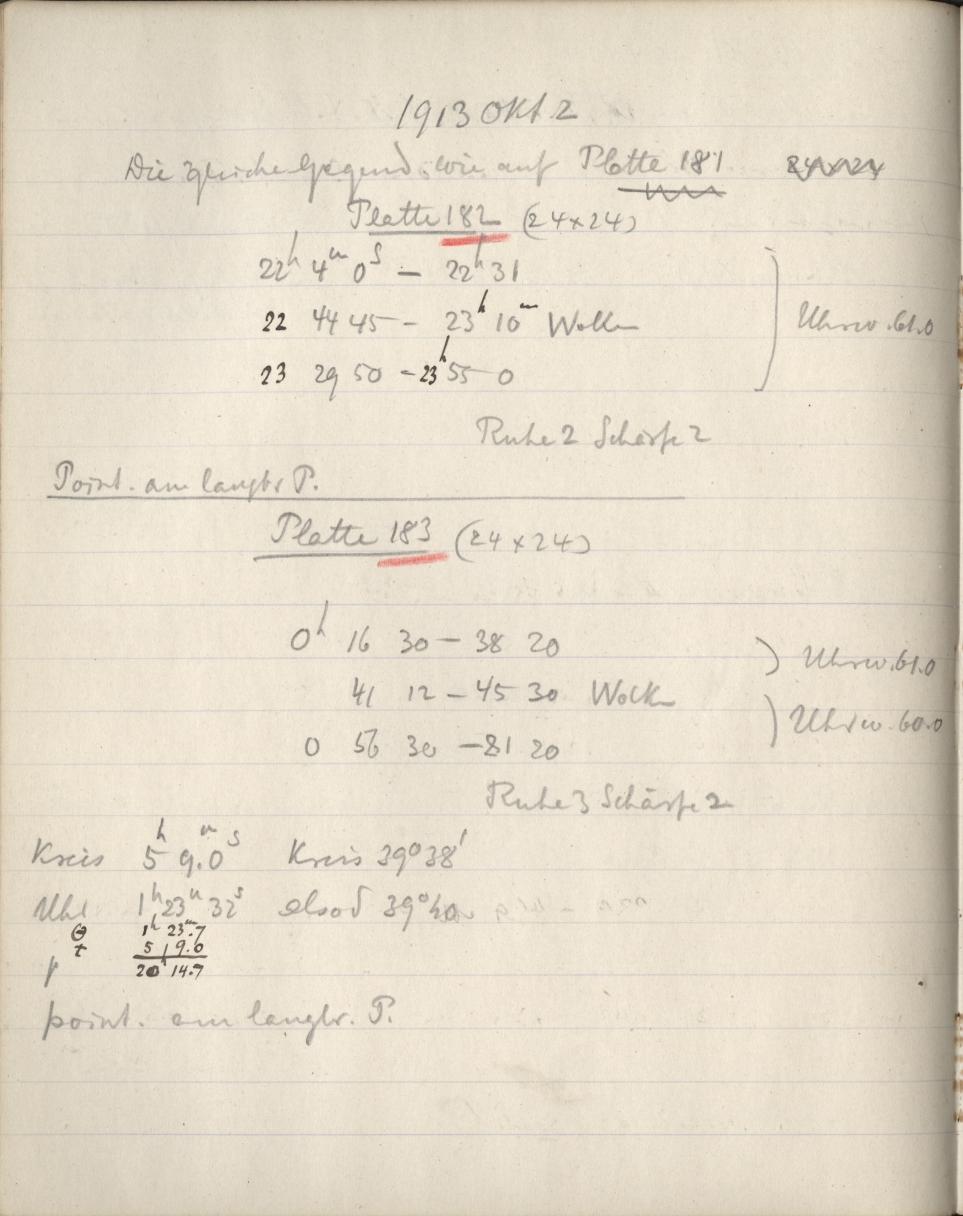 1913 Okt 2
Die gleiche Gegend wie auf Platte 181 24x24
Platte 182 (24x24)
22h 4m 0s – 22h 31
22 44 45 – 23h 10m Wolken
23 29 50 – 23h 55 0
Uhrw. 61.0
Ruhe 2 Schärfe 2
Point. am langbr P.
Platte 183 (24x24)
0h 16 30 – 38 20
Uhrw. 61.0
41 12 – 45 30 Wolken
Uhrw. 60.0
0 56 30 – 81 20
Ruhe 3 Schärfe 2
Kreis 5h 9.0m s Kreis 39° 38'
Uhr 1h 23m 32s also δ 39° 40
θ 1h 23m.7
t 5 9.0
20h 14.7
point. am langbr. P.